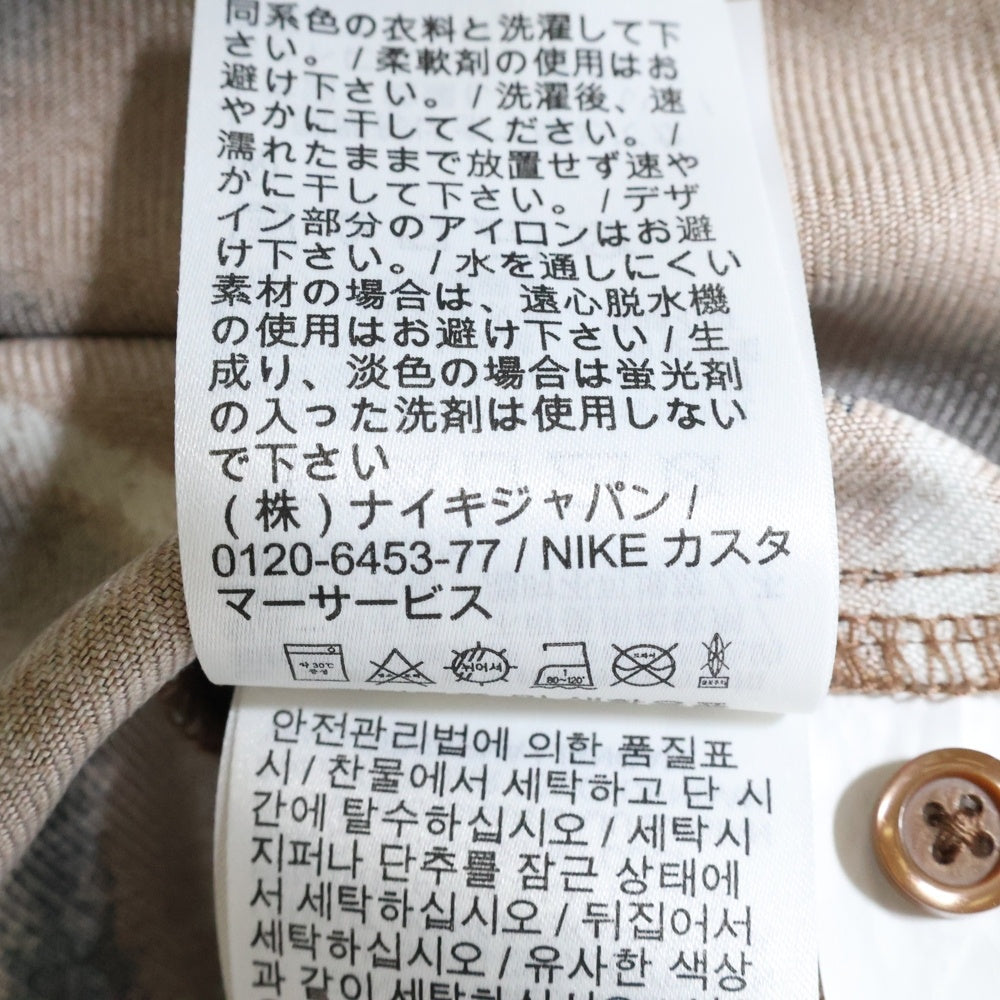 同系色の衣料と洗濯して下
さい。 / 柔軟剤の使用はお
避け下さい。 / 洗濯後、速
やかに干してください。 /
濡れたままで放置せず速や
かに干して下さい。 / デザ
イン部分のアイロンはお避
け下さい。 / 水を通しにくい
素材の場合は、遠心脱水機
の使用はお避け下さい / 生
成り、淡色の場合は蛍光剤
の入った洗剤は使用しない
で下さい
(株)ナイキジャパン /
0120-6453-77 / NIKE カスタ
マーサービス
약 30℃
1
80~120°
드라이
안전관리법에 의한 품질표
시 / 찬물에서 세탁하고 단 시
간에 탈수하십시오 / 세탁시
지퍼나 단추를 잠근 상태에
서 세탁하십시오 / 뒤집어서
세탁하십시오 / 유사한 색상
과 같이 세탁하십시오